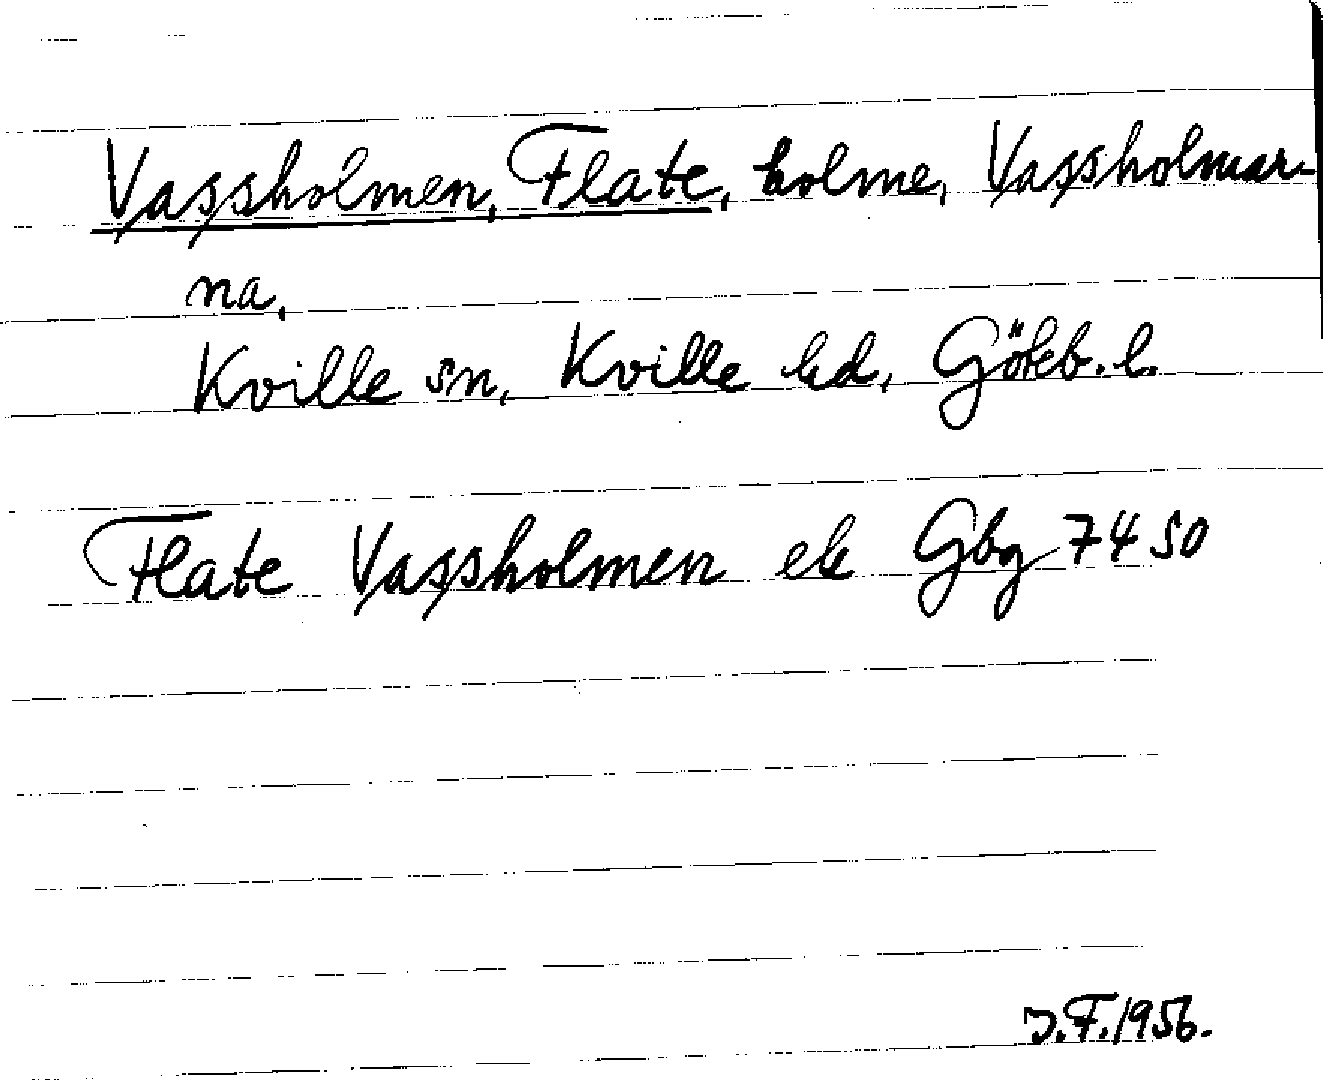 Vassholmen, Flate, holme, Vassholmar-
na,
Kville sn, Kville hd, Göteb. l.
Flate Vassholmen ek Gbg 7450
J.F. 1956.